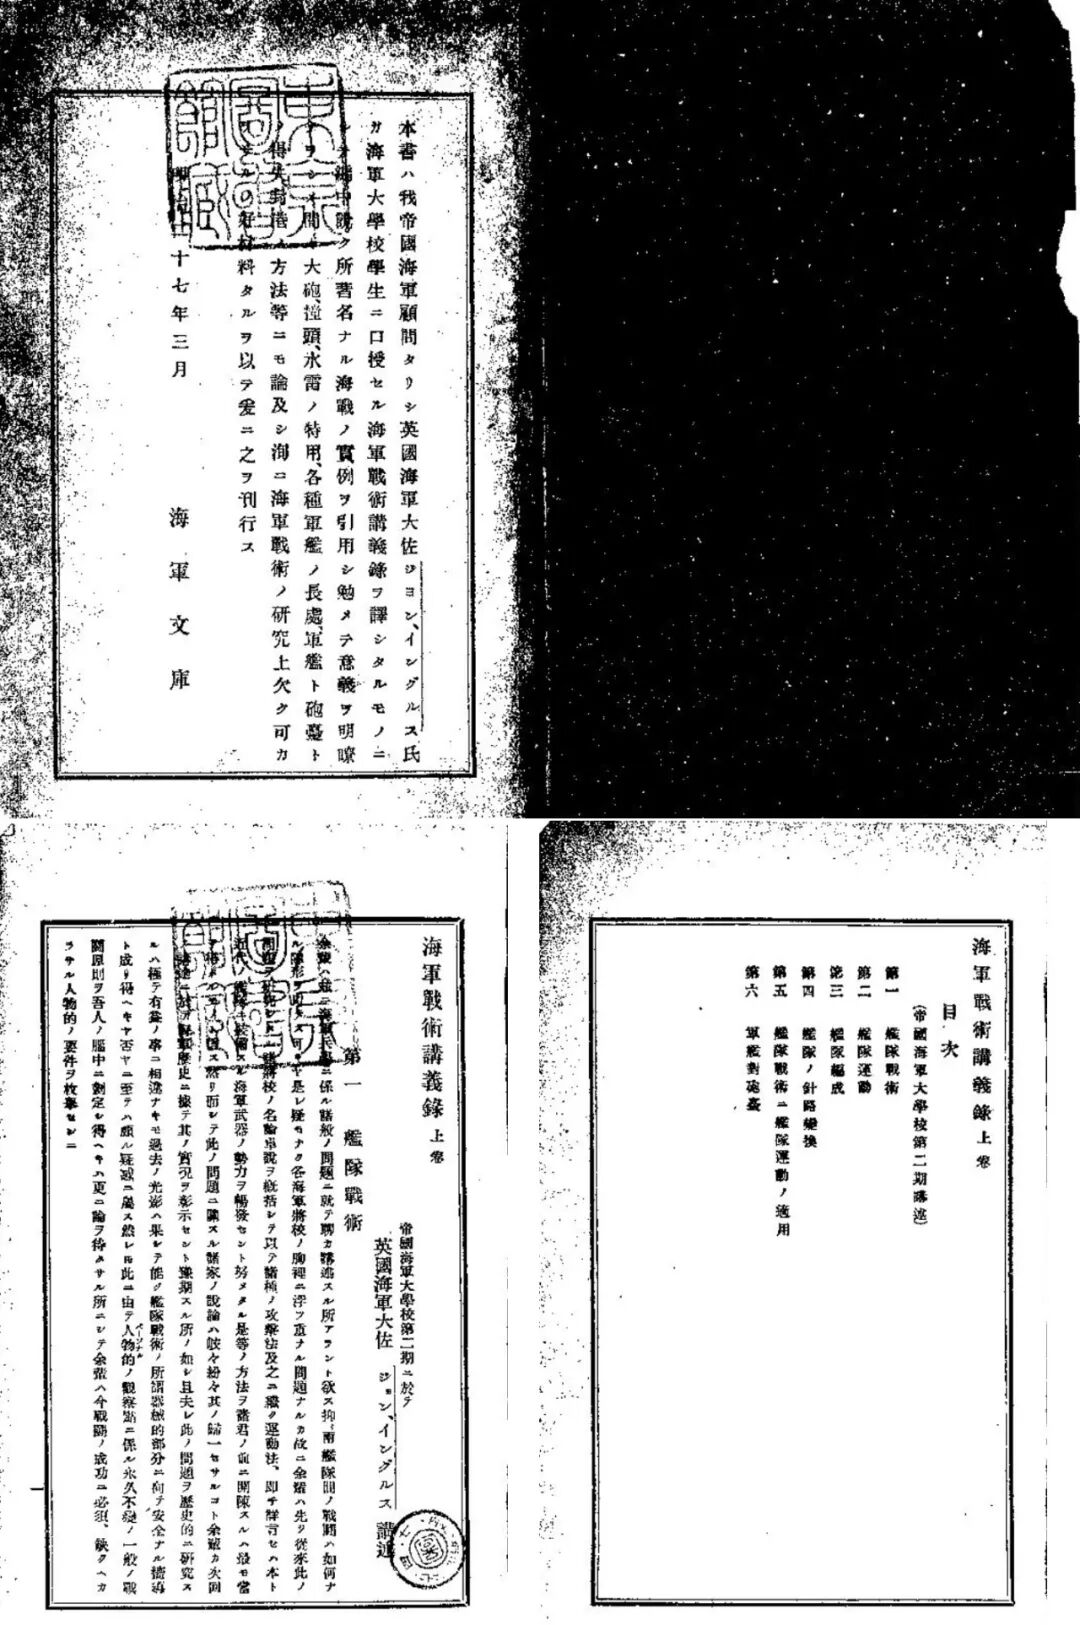 本書ハ我帝國海軍顧問タリシ英國海軍大佐ジョン、イングルス氏
ガ海軍大學校學生ニ口授セル海軍戰術講義錄ヲ譯シタルモノニ
所著名ナル海戰ノ實例ヲ引用シ勉メテ意義ヲ明瞭
大砲、撞頭、水雷ノ特用、各種軍艦ノ長處、軍艦ト砲臺ト
方法等ニモ論及シ洵ニ海軍戰術ノ研究上欠ク可カ
料タルヲ以テ爰ニ之ヲ刊行ス
十七年三月
海軍文庫
海軍戰術講義錄上卷
目次
(帝國海軍大學校第二期講述)
第一 艦隊戰術
第二 艦隊運動
第三 艦隊編成
第四 艦隊ノ針路變換
第五 艦隊戰術ニ艦隊運動ノ適用
第六 軍艦對砲臺
海軍戰術講義錄上卷
帝國海軍大學校第二期ニ於テ
英國海軍大佐 ジョン、イングルス 講述
第一 艦隊戰術
係ル諸般ノ問題ニ就テ聊カ講述スル所アラント欲ス抑兩艦隊間ノ戰鬪ハ如何ナ
是レ疑モナク各海軍將校ノ胸裡ニ浮フ重ナル問題ナルカ故ニ余輩ハ先ツ從來此ノ
諸將校ノ名論卓說ヲ概括シテ以テ諸種ノ攻擊法及之ニ繼ク運動法、即チ詳言セハ本ト
海軍武器ノ勢力ヲ暢發セント努メタル是等ノ方法ヲ諸君ノ前ニ開陳スルハ最モ當
然リ而シテ此ノ問題ニ關スル諸家ノ說論ハ岐々紛々其ノ歸一セサルコト余輩カ次回
歷史ニ據テ其ノ實況ヲ彰示セント豫期スル所ノ如シ且夫レ此ノ問題ヲ歷史的ニ研究ス
ルハ極テ有益ノ事ニ相違ナキモ過去ノ光影ハ果シテ能ク艦隊戰術ノ所謂器械的部分ニ向テ安全ナル嚮導
ト成リ得ヘキヤ否ヤニ至テハ頗ル疑惑ニ屬ス然レ圧此ニ由テ人物的ノ觀察點ニ係ル永久不變ノ一般ノ戰
鬪原則ヲ吾人ノ腦中ニ劃定シ得ヘキハ更ニ論ヲ待タサル所ニシテ余輩ハ今戰鬪ノ成功ニ必須、缺クヘカ
ラサル人物的ノ要件ヲ枚擧センニ
一